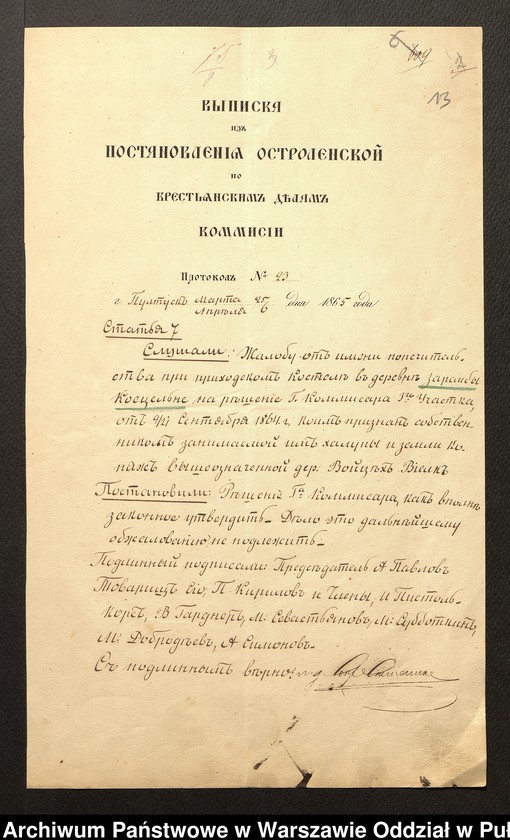 13
ВЫПИСКА
ИЗЪ
ПОСТАНОВЛЕНІЯ ОСТРОЛЕНСКОЙ
ПО
КРЕСТЬЯНСКИМЪ ДѢЛАМЪ
КОММИСІИ
Протоколъ № 23
г. Пултускъ Марта 25 / Апрѣля 6 дня 1865 года
Статья 7
Слушали: Жалобу отъ имени попечитель-
ства при приходскомъ костелѣ въ деревнѣ Зарембы
Косцельне на рѣшеніе Г. Коммисара 3го Участка,
отъ 9/21 Сентября 1864 г, коимъ признанъ собствен-
никомъ занимаемой имъ халупы и земли ко-
пажъ вышеозначенной дер. Войцѣхъ Вілкъ
Постановили: Рѣшеніе Гна Коммисара, какъ вполнѣ
законное утвердить. Дѣло это дальнѣйшему
обжалованію не подлежитъ.
Подлинный подписали: Предсѣдатель А Павловъ
Товарищъ Его, П Кириловъ и Члены, И Пистоль-
корсъ, В Гарднеръ, М: Севастьяновъ, М: Субботкинъ,
М: Добродѣевъ, А Симоновъ.
Съ подлиннымъ вѣрно:
Archiwum Państwowe w Warszawie Oddział w Puł